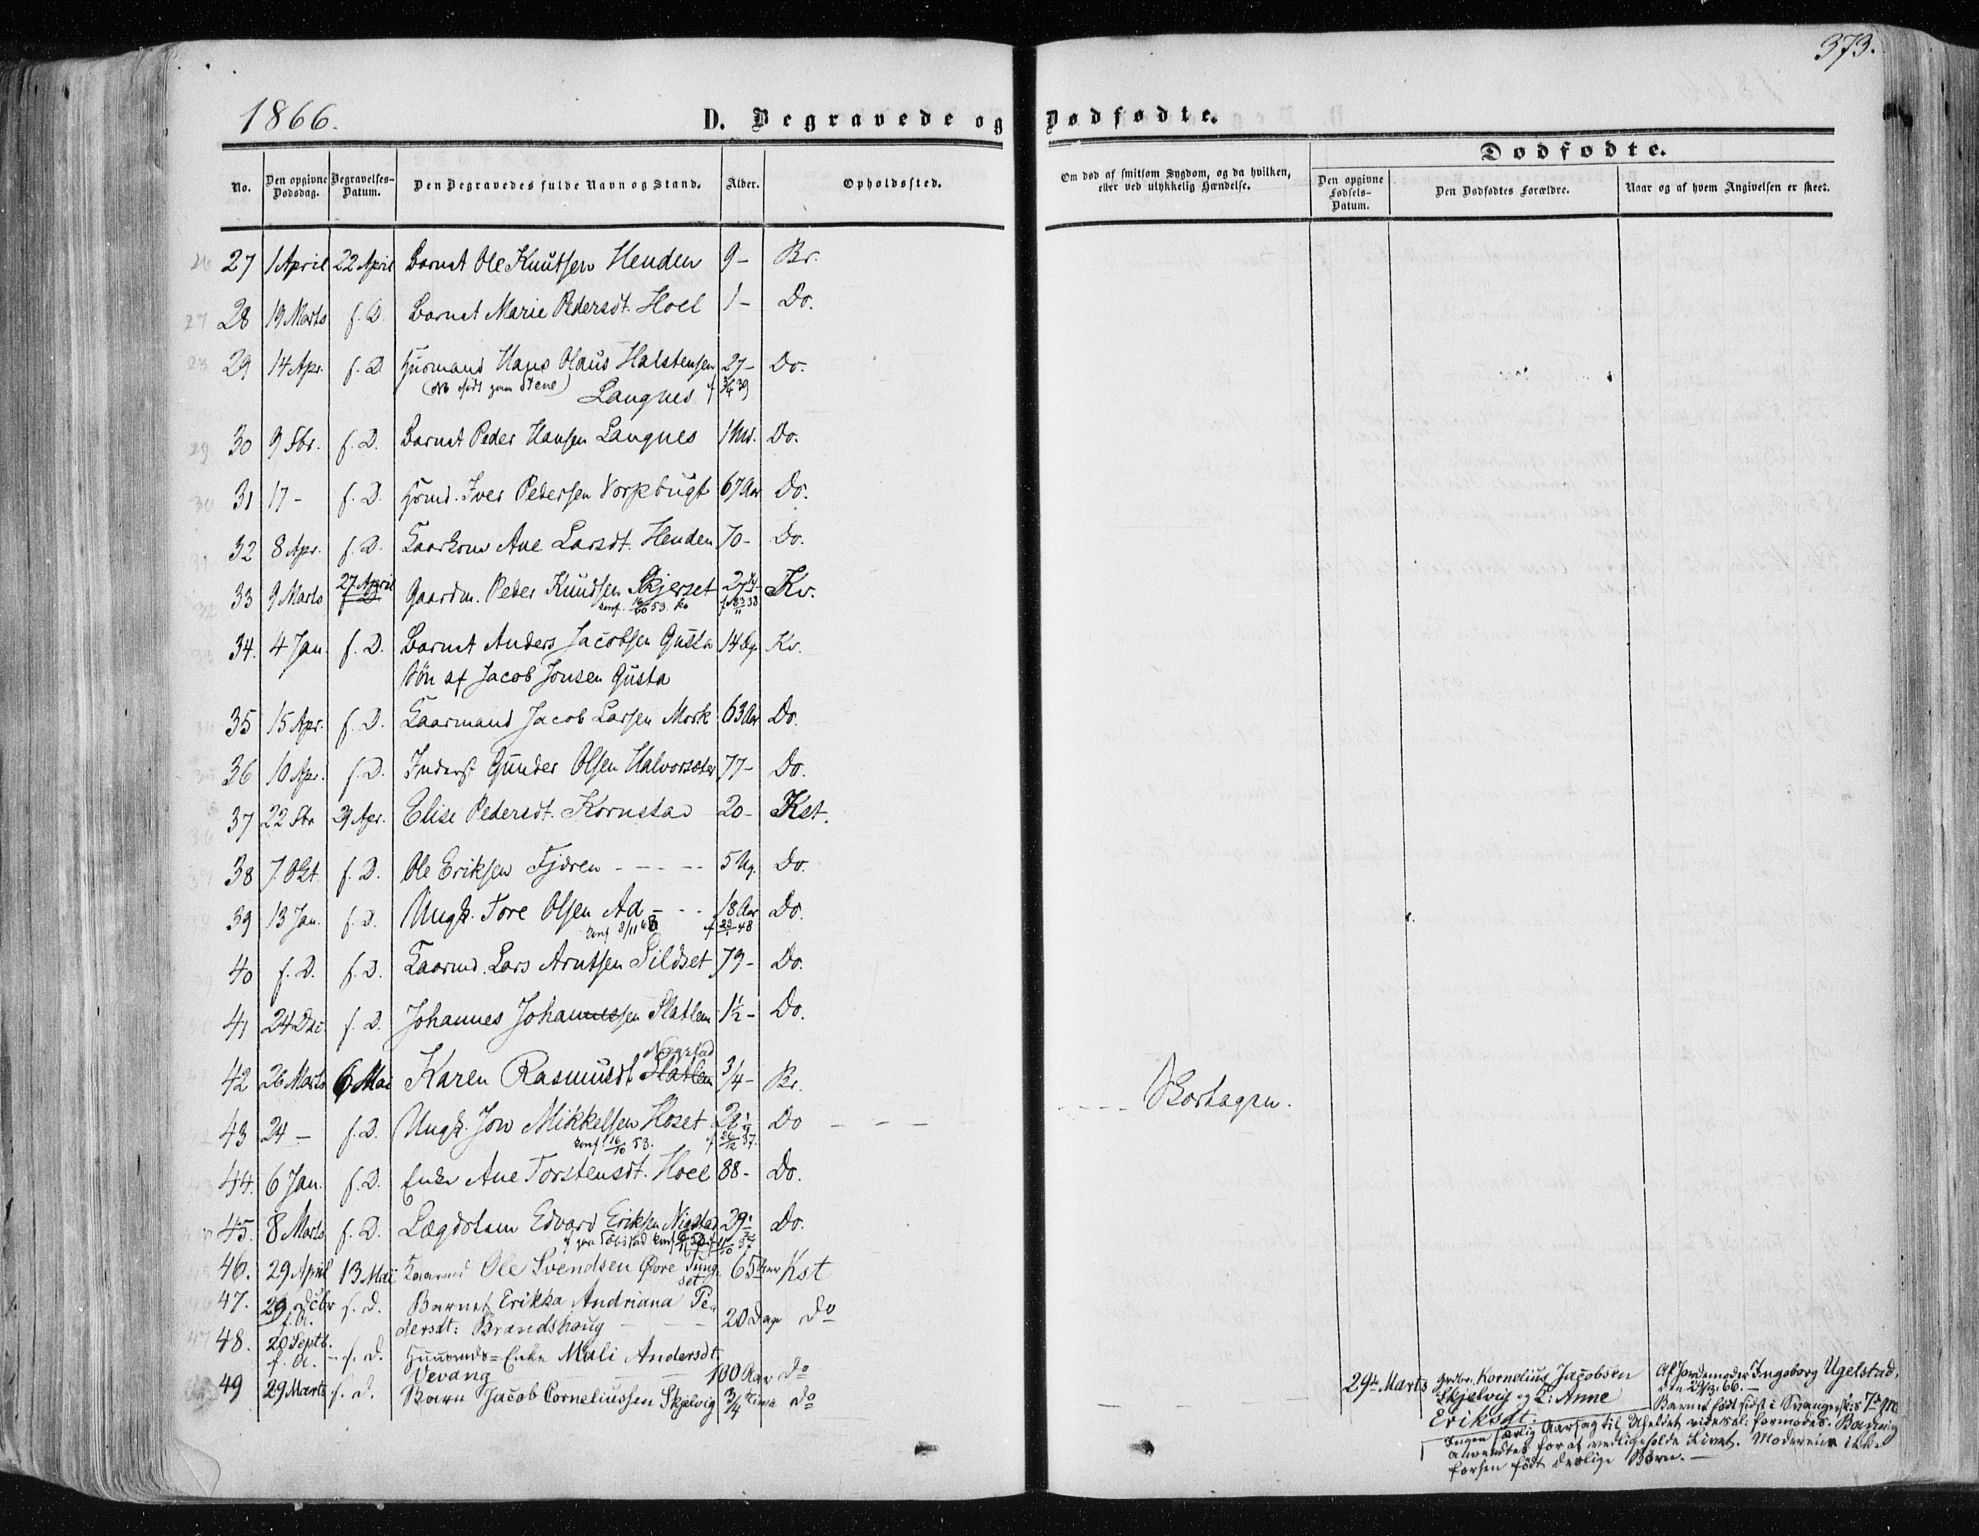 373.
1866.
D. Begravede og Dødfødte.
Dødfødte.
No.
Den opgivne Dødsdag.
Begravelses-Datum.
Den Begravedes fulde Navn og Stand.
Alder.
Opholdssted.
Om død af smitsom Sygdom, og da hvilken, eller ved ulykkelig Hændelse.
Den opgivne Fødsels-Datum.
Den Dødfødtes Forældre.
Naar og af hvem Angivelsen er skeet.
27 1 April 22 April Barnet Ole Knutsen Henden 9 - Br.
28 19 Marts f. D. Barnet Marie Pedersdt. Hoel 1 - Do.
29 14 Apr. f. D. Huusmand Hans Olaus Halstensen 27 - Do.
Langnes
30 9 Fbr. f. D. Barnet Peder Hansen Langnes 1 Md. Do.
31 17 - f. D. Iver Pedersen Vorpbugt 67 Aar Do.
32 8 Apr. f. D. Kaarkone Ane Larsdt. Henden 70 - Do.
33 9 Marts 27 April Gaardm. Peder Knudsen Skjerset 27 Kv.
34. 4 Jan. f. D. Barnet Anders Jacobsen Gusta 14 Dg. Kv.
Søn af Jacob Jonsen Gusta
35 15 Apr. f. D. Kaarmand Jacob Larsen Mork 63 Aar Do.
36 10 Apr. f. D. Inderst Gunder Olsen Halvorsæter 77 - Do.
37 22 Fbr 29 Apr. Elise Pedersdt. Kornstad 20 - Kst.
38 7 Okt. f. D. Ole Eriksen Fjøren - - - - 5 Ug. Do.
39 13 Jan. f. D. Ungk. Tore Olsen Aa - - - 18 Aar Do.
40 f. D. f. D. Kaarmd. Lars Arntsen Sildset 79 - Do.
41 24 Dec f. D. Johannes Johannessen Slatlem 1½ - Do.
Nøgstad
42 26 Marts 6 Mai Karen Rasmusdt. Slatlem 3/4 - Br.
43 24 - f. D. Ungk. Jon Mikkelsen Hoset 28 Do - - - - - - - Bortagen.
conf. 16/10 53.
44. 6 Jan. f. D. Enke Ane Torstensdt. Hoel 88 - Do.
45. 8 Marts f. D. Lægdslem Edvard Eriksen Nigstad 29 Do.
46. 29 April 13 Mai Kaarmd Ole Svendsen Øvre Tung- 65 Aar Kst
set
47. 29 Dcbr f. D. Barnet Erikka Andriana Pe-
f. A. dersdt: Brandshaug - - 20 Dage Do
48. 20 Septb. f. D. Huusmds=Enke Mali Andersdt.
f. A. Vevang 100 Aar Do
49 29 Marts f. D. Barn Jacob Corneliussen Skjelvig 3/4 Time Do
29de Marts Kornelius Jacobsen
Skjelvig og K: Anne
Eriksdt:
Af Jordemoder Ingeborg Ugelstad,
den 29/3. 66. -
Barnet født sidst i Svangersk:s 7de M
Ingen særlig Aarsag til Uheldet vides el: formodes. Badning
anvendtes for at vedligeholde Livet. Moderen ikke
forhen født dødlige Børn. -